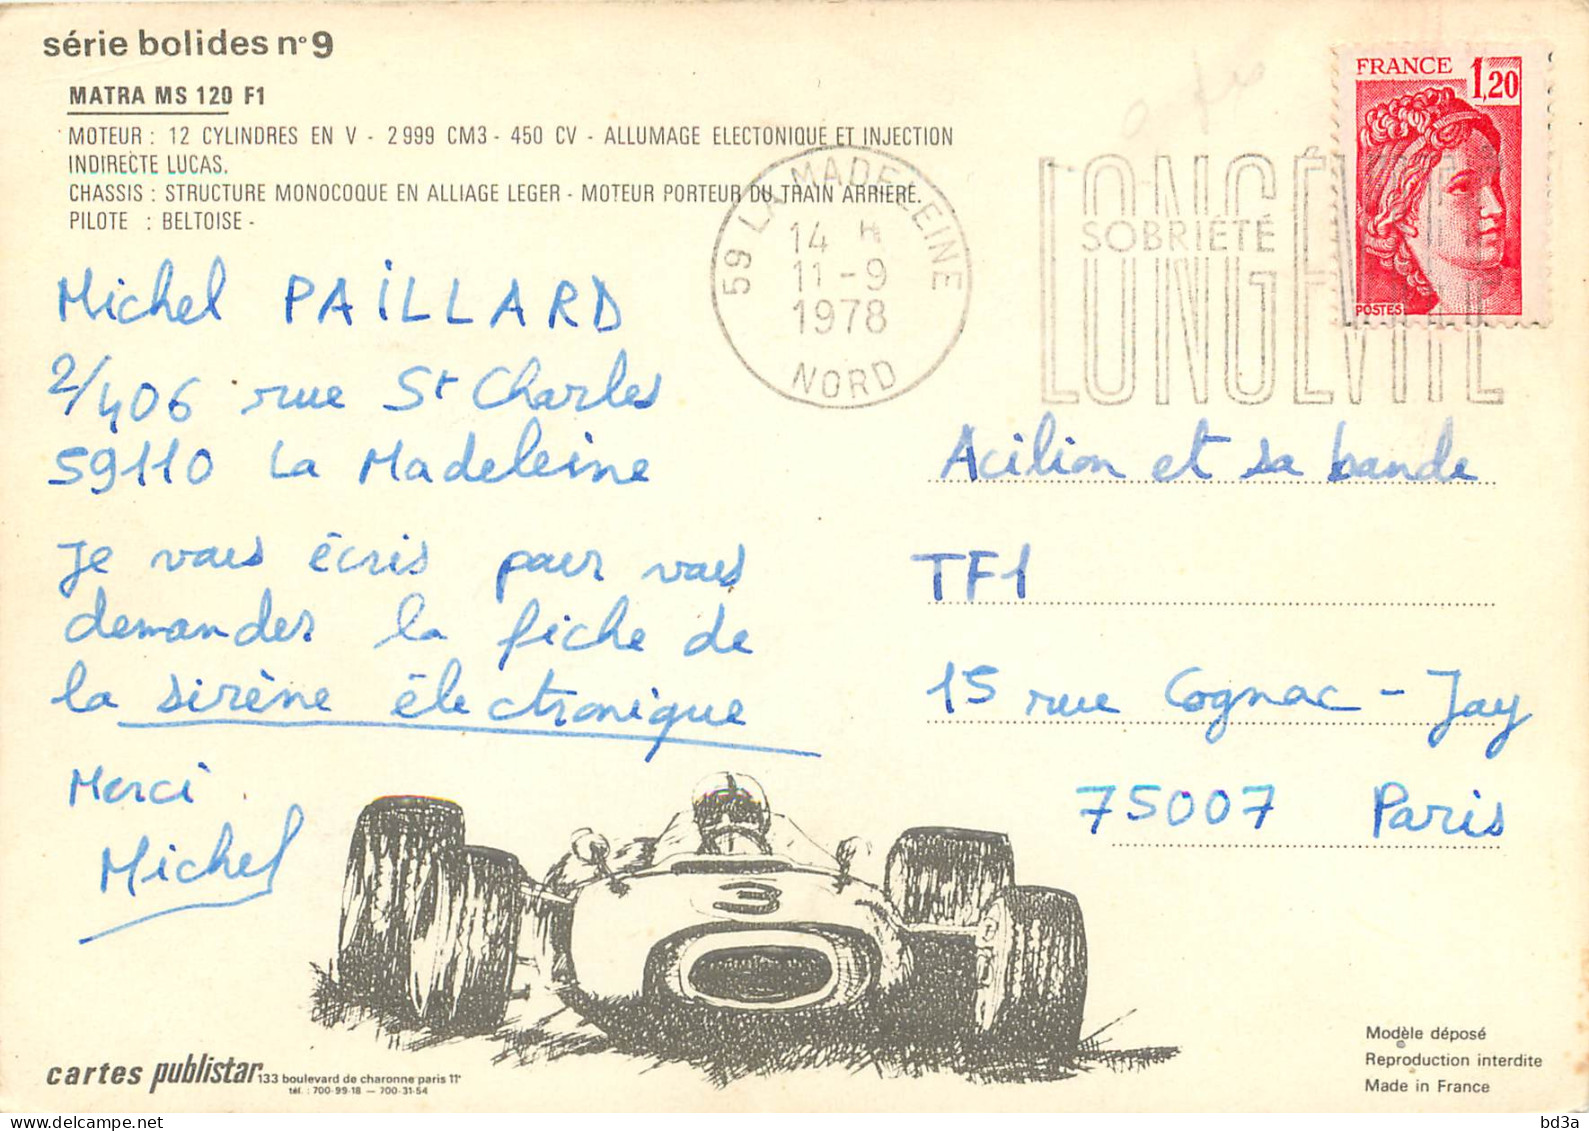 série bolides n°9
MATRA MS 120 F1
MOTEUR : 12 CYLINDRES EN V - 2 999 CM3 - 450 CV - ALLUMAGE ELECTONIQUE ET INJECTION
INDIRECTE LUCAS.
CHASSIS : STRUCTURE MONOCOQUE EN ALLIAGE LEGER - MOTEUR PORTEUR DU TRAIN ARRIERE.
PILOTE : BELTOISE -
FRANCE 1,20
POSTES
59 LA MADELEINE
14 H
11 - 9
1978
NORD
LONGÉVITÉ
SOBRIÉTÉ
LONGÉVITÉ
Michel PAILLARD
2/406 rue St Charles
59110 La Madeleine
Je vous écris pour vous
demander la fiche de
la sirène électronique
Merci
Michel
Acilion et sa bande
TF1
15 rue Cognac - Jay
75007 Paris
3
cartes publistar 133 boulevard de charonne paris 11e
tél. : 700-99-18 — 700-31-54
Modèle déposé
©
Reproduction interdite
Made in France
bd3a